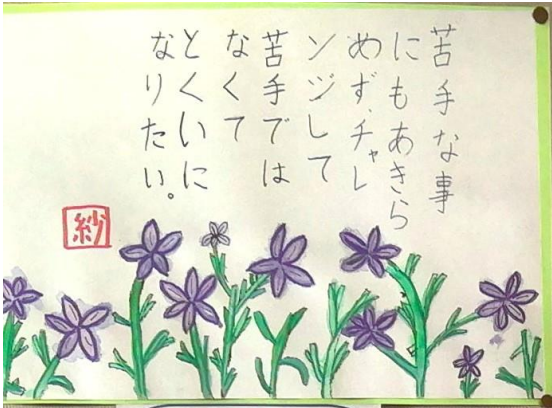 苦手な事
にもあきら
めず、チャレ
ンジして
苦手では
なくて
とくいに
なりたい。
紗